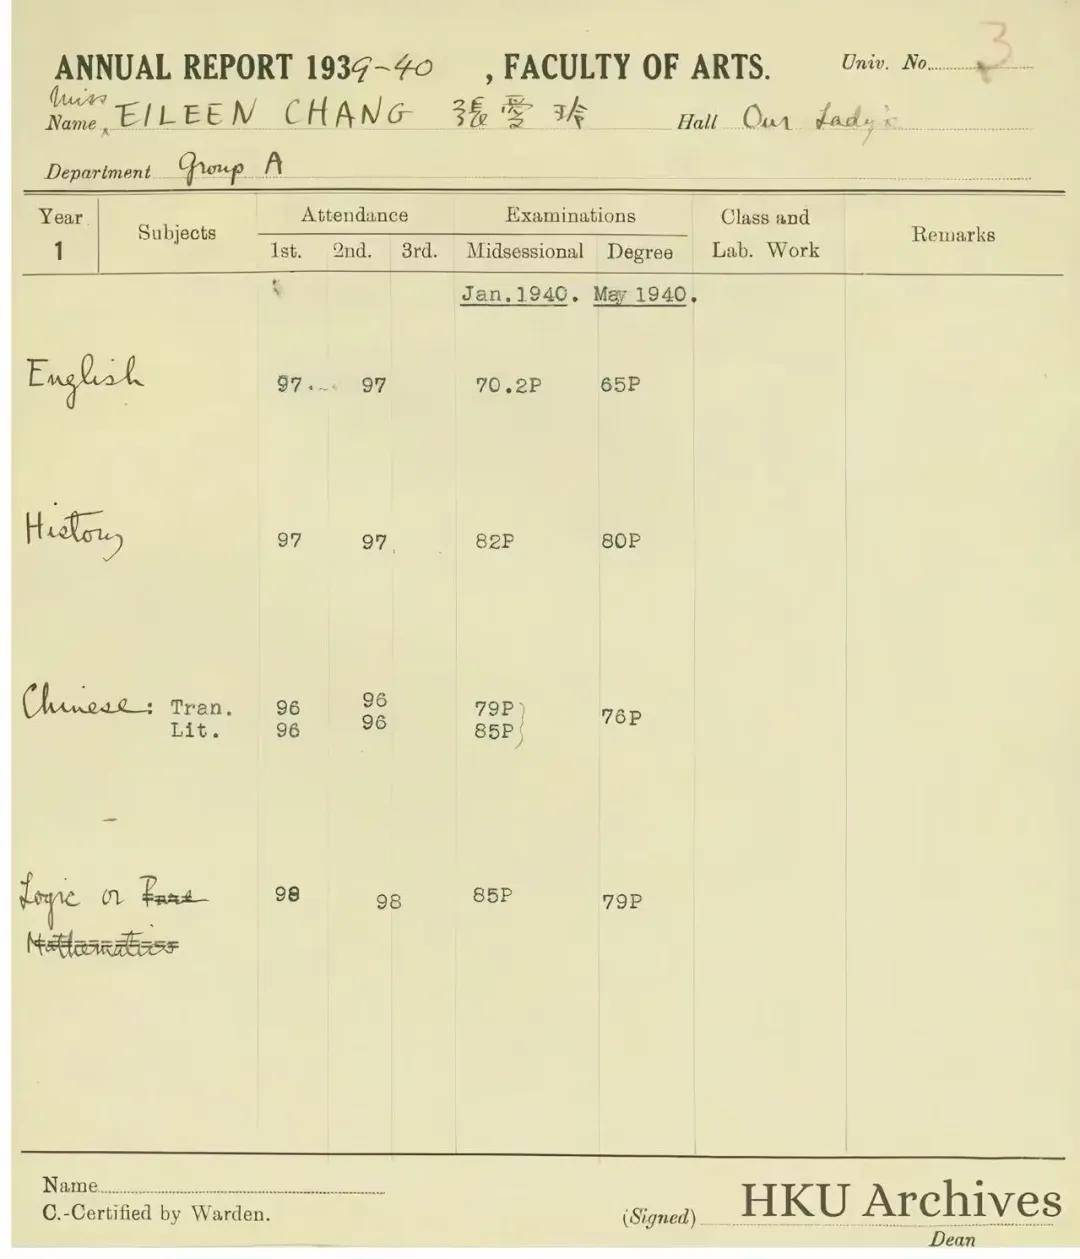 3
ANNUAL REPORT 1939-40 , FACULTY OF ARTS. Univ. No.
Miss
Name EILEEN CHANG 張愛玲 Hall Our Lady's
Department Group A
Year Subjects Attendance Examinations Class and Remarks
1 1st. 2nd. 3rd. Midsessional Degree Lab. Work
Jan.1940. May 1940.
English 97 97 70.2P 65P
History 97 97 82P 80P
Chinese: Tran. 96 96 79P 76P
Lit. 96 96 85P
Logic or Pure 98 98 85P 79P
Mathematics
Name
C.-Certified by Warden. (Signed) HKU Archives
Dean